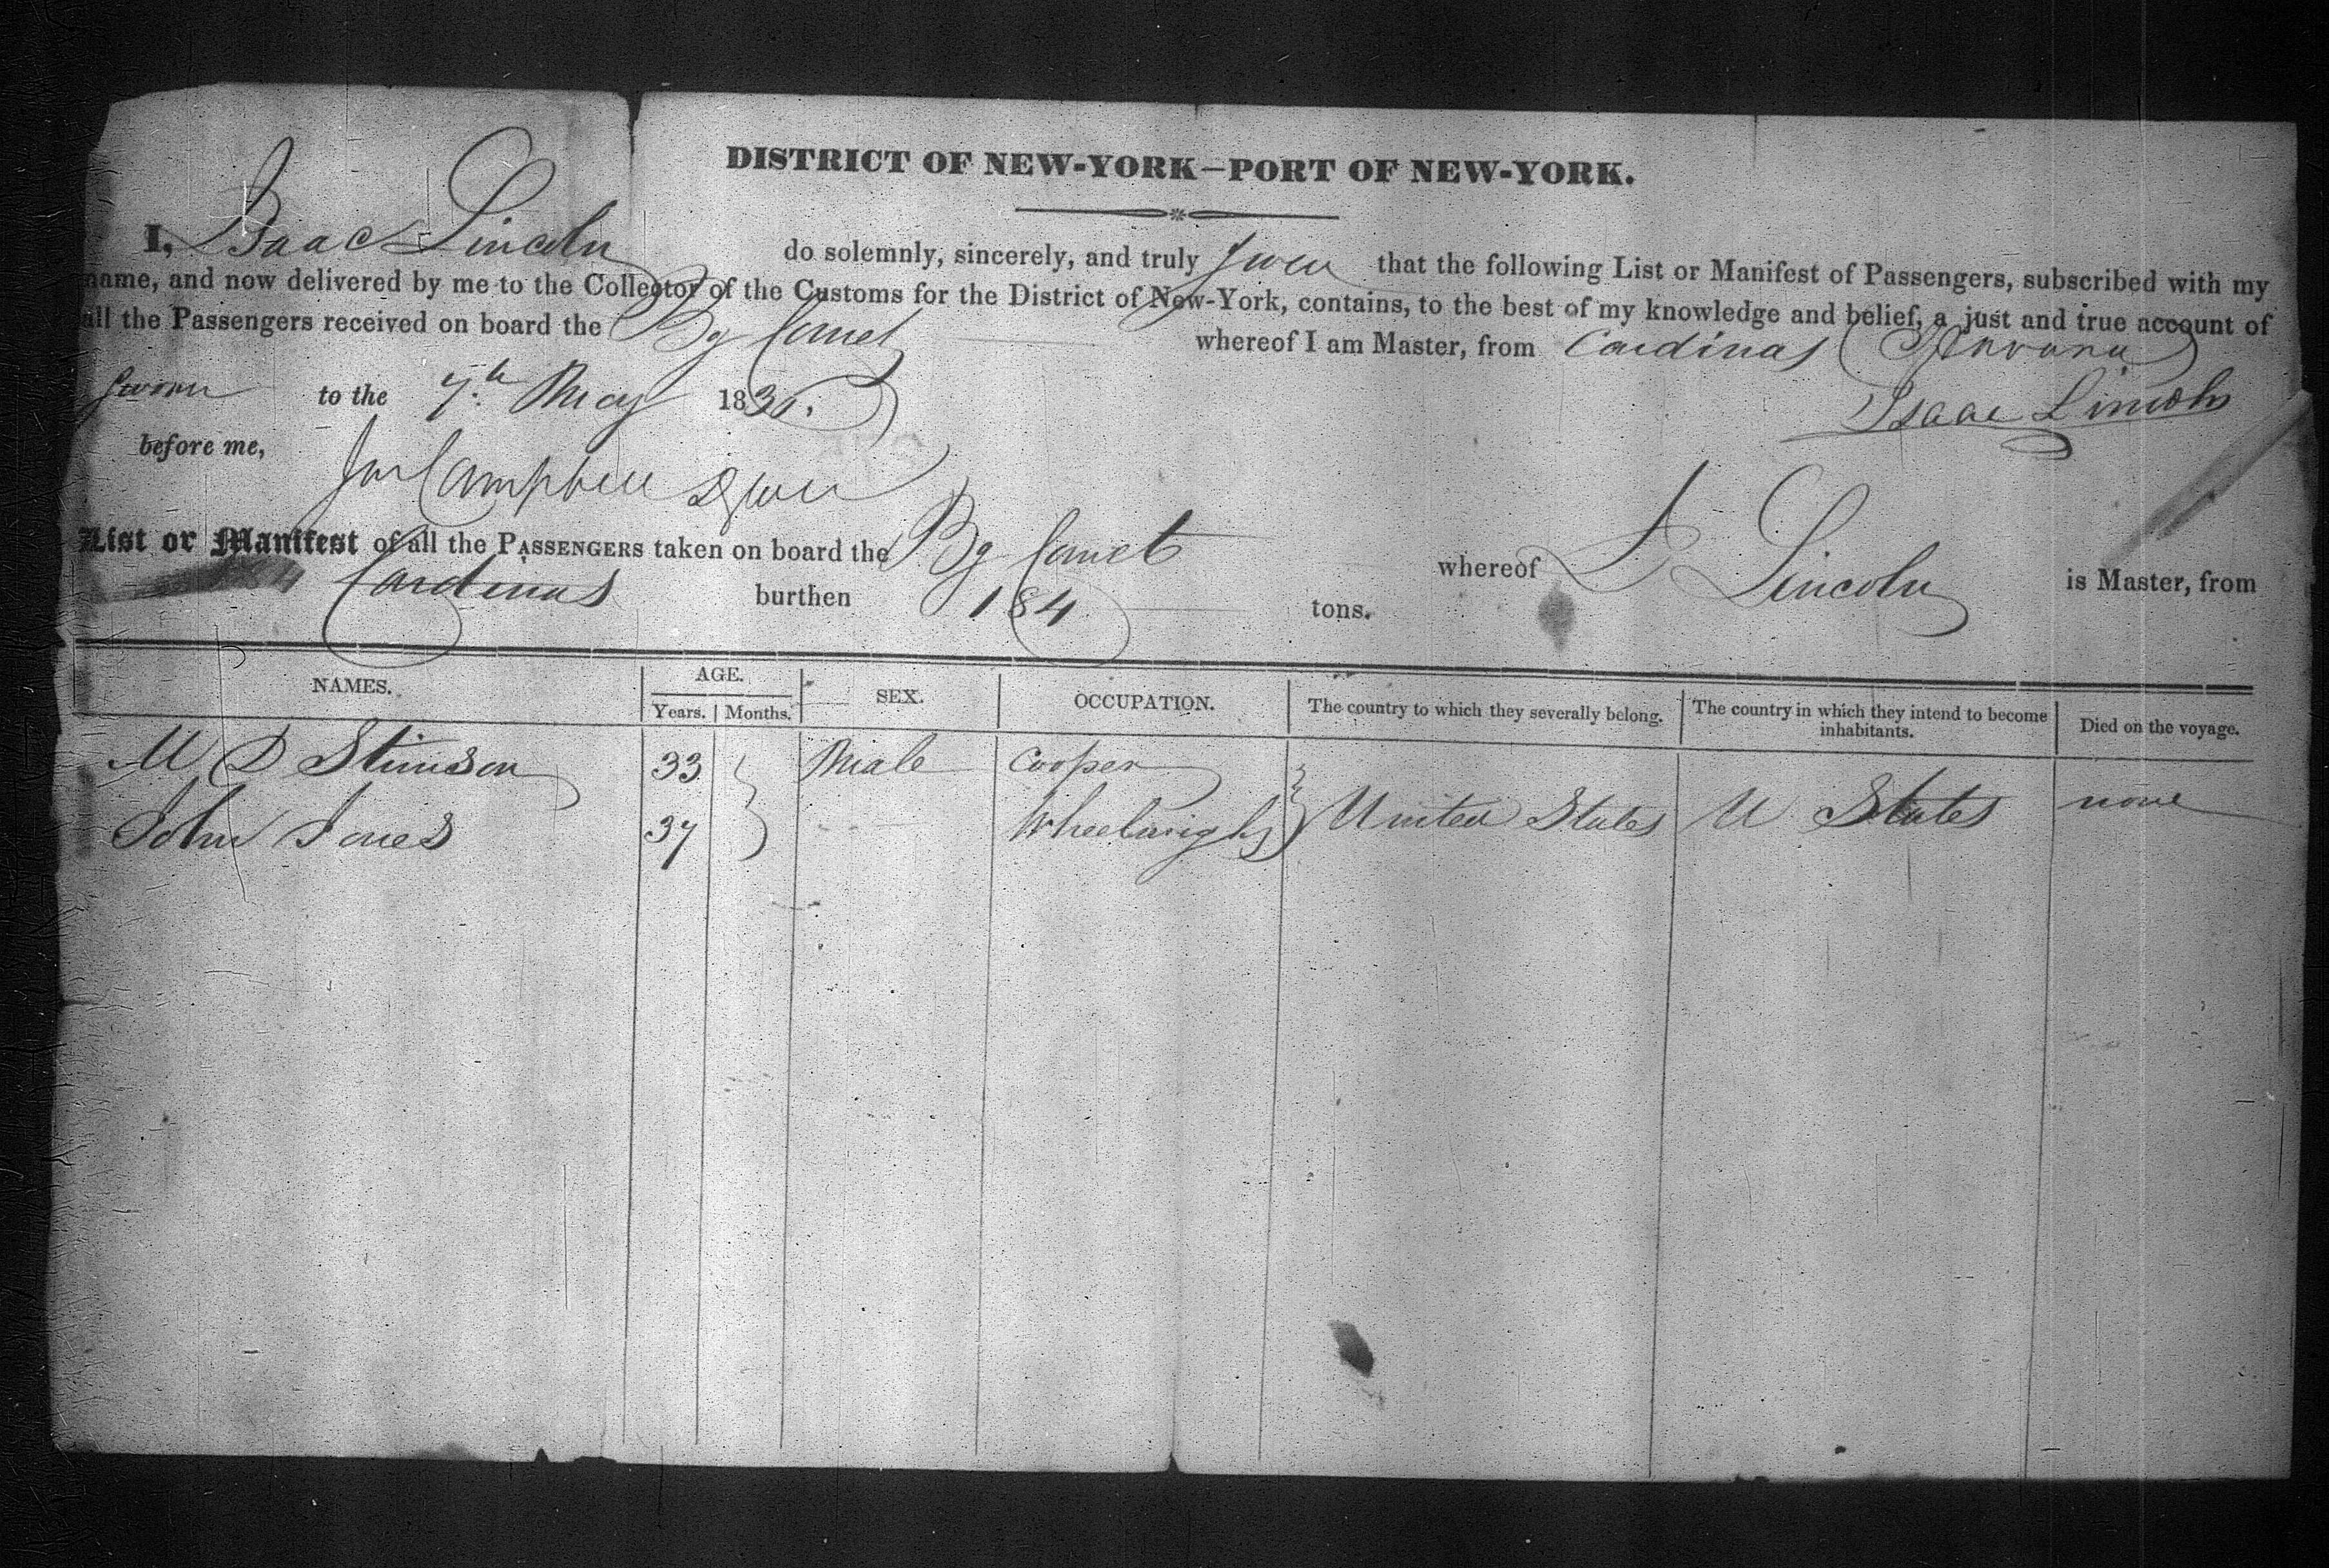 DISTRICT OF NEW-YORK—PORT OF NEW-YORK.
I, Isaac Lincoln do solemnly, sincerely, and truly swear that the following List or Manifest of Passengers, subscribed with my
name, and now delivered by me to the Collector of the Customs for the District of New-York, contains, to the best of my knowledge and belief, a just and true account of
all the Passengers received on board the Bg Comet whereof I am Master, from Cardinas (Havana)
Sworn to the 7th May 183 Isaac Lincoln
before me,
Campbell
List or Manifest of all the PASSENGERS taken on board the Bg Comet whereof I Lincoln is Master, from
Cardinas burthen 184 tons.
NAMES. AGE. SEX. OCCUPATION. The country to which they severally belong. The country in which they intend to become inhabitants. Died on the voyage.
Years. Months.
M D Stimson 33 Male Cooper
John Jones 37 Wheelwright United States U States none